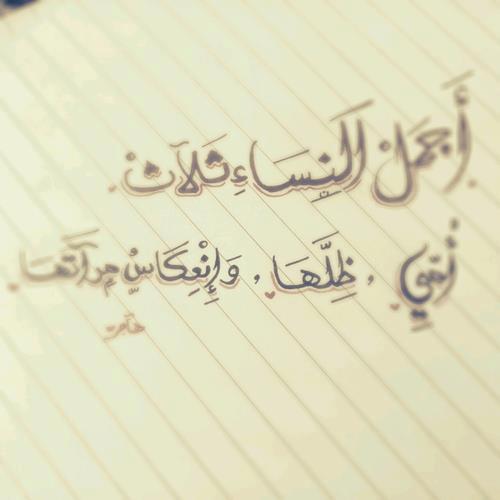 أَجمَلْ النِسَاءِ ثَلآثْ
أُمّيِ , ظِلَّهَا , وَإِنْعِكَاسُ مِرآتَهَا